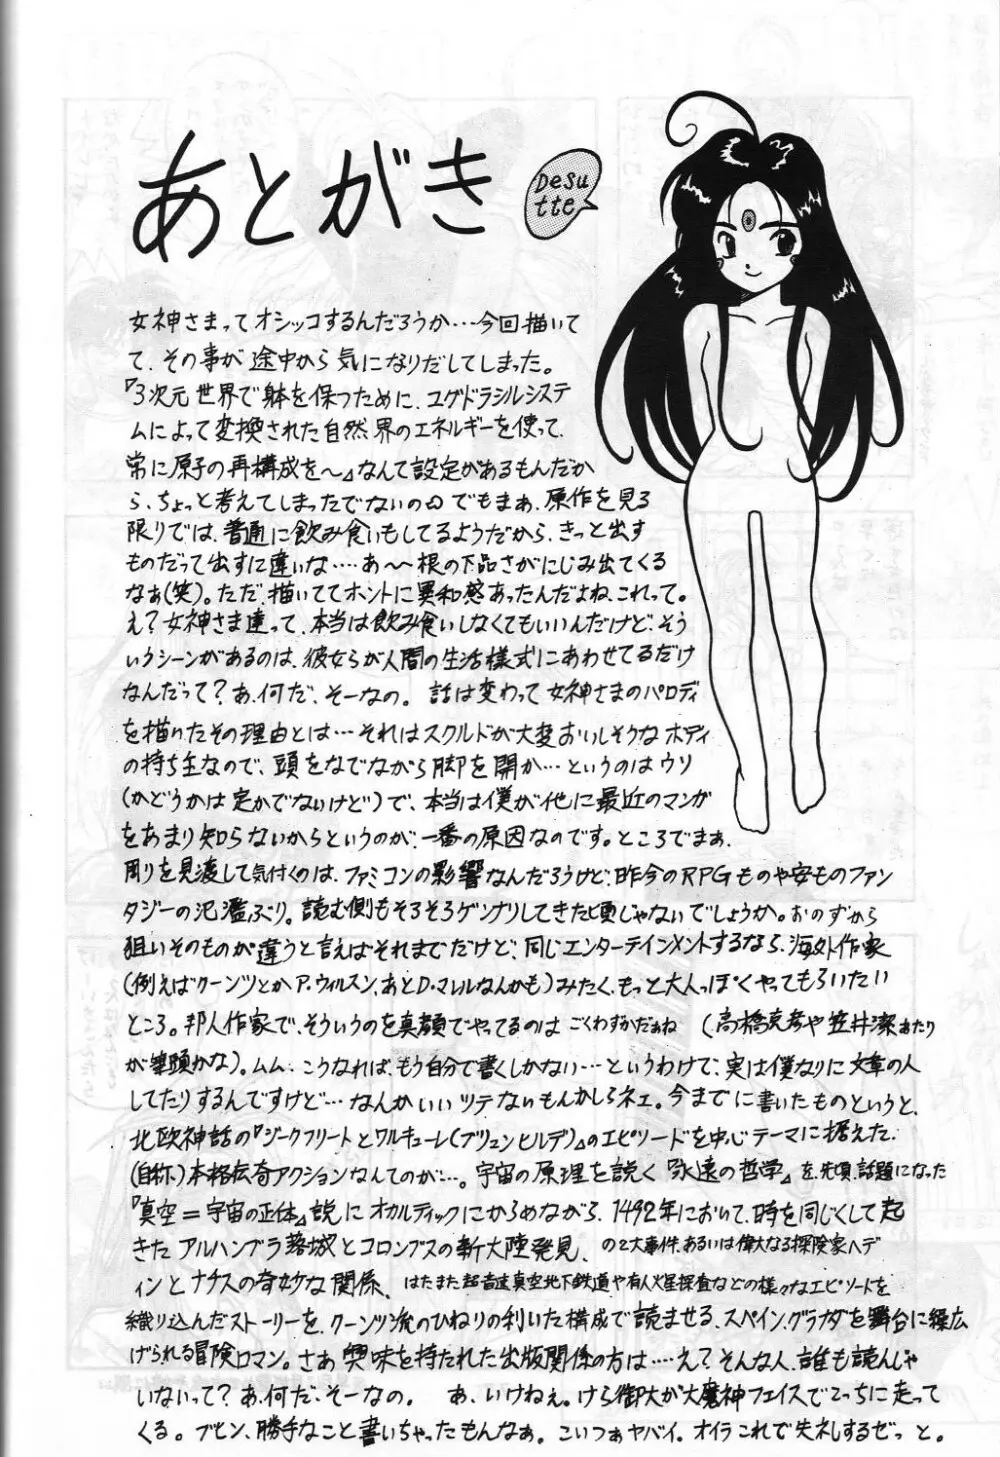 あとがき
Desu
tte
女神さまってオシッコするんだろうか…今回描いて
て、その事が途中から気になりだしてしまった。
『3次元世界で躰を保つために、ユグドラシルシステ
ムによって変換された自然界のエネルギーを使って、
常に原子の再構成を〜』なんて設定があるもんだか
ら、ちょっと考えてしまったでないの。でもまぁ、原作を見る
限りでは、普通に飲み食いもしてるようだから、きっと出す
ものだって出すに違いな……あ〜根の下品さがにじみ出てくる
なぁ(笑)。ただ、描いててホントに異和感あったんだよね、これって。
え?女神さま達って、本当は飲み食いしなくてもいいんだけど、そう
いうシーンがあるのは、彼女らが人間の生活様式にあわせてるだけ
なんだって?あ、何だ、そーなの。話は変わって女神さまのパロディ
を描いたその理由とは…それはスクルドが大変おいしそうなボディ
の持ち主なので、頭をなでながら脚を開か…というのはウソ
(かどうかは定かでないけど)で、本当は僕が他に最近のマンガ
をあまり知らないからというのが、一番の原因なのです。ところでまぁ、
周りを見渡して気付くのは、ファミコンの影響なんだろうけど、昨今のRPGものや安ものファン
タジーの氾濫ぶり。読む側もそろそろゲンナリしてきた頃じゃないでしょうか。おのずから
狙いそのものが違うと言えばそれまでだけど、同じエンターテインメントするなら、海外作家
(例えばクーンツとかA.ウィルスン、あとD.マレルなんかも)みたく、もっと大人っぽくやってもらいたい
ところ。邦人作家で、そういうのを真顔でやってるのはごくわずかだぁね(高橋克彦や笠井潔あたり
が筆頭かな)。ムム、こうなれば、もう自分で書くしかない…というわけで、実は僕なりに文章の人
してたりするんですけど…なんかいいツテないもんかしらネェ。今までに書いたものというと、
北欧神話の『ジークフリートとワルキューレ(ブリュンヒルデ)』のエピソードを中心テーマに据えた、
(自称)本格伝奇アクションなんてのが…。宇宙の原理を説く『永遠の哲学』を、先頃、話題になった
『真空=宇宙の正体』説にオカルティックにからめながら、1492年において、時を同じくして起
きたアルハンブラ落城とコロンブスの新大陸発見、の2大事件、あるいは偉大なる探険家ヘデ
ィンとナチスの奇妙な関係、はたまた超音速真空地下鉄道や有人火星探査などの様々なエピソードを
織り込んだストーリーを、クーンツ流のひねりの利いた構成で読ませる、スペイン、グラナダを舞台に繰広
げられる冒険ロマン。さあ興味を持たれた出版関係の方は……え?そんな人、誰も読んじゃ
いないって?あ、何だ、そーなの。あ、いけねぇ。けら御大が大魔神フェイスでこっちに走って
くる。ブヒン、勝手なこと書いちゃったもんなぁ。こいつぁヤバイ。オイラこれで失礼するぜっと。